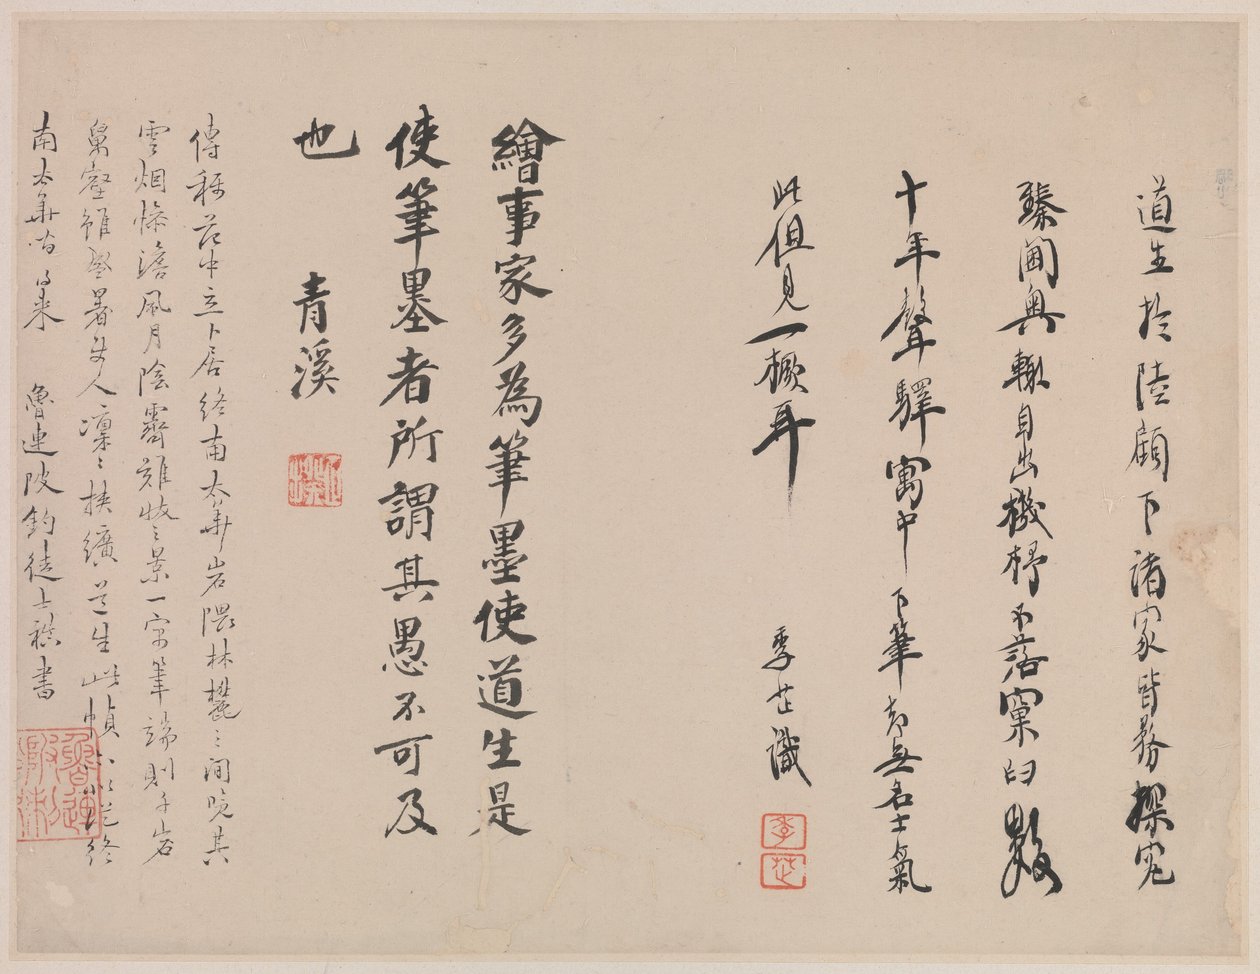 道生於陸顧下諸家皆務探究
臻閫奧輙自出機杼不落窠臼數
十年聲驛寓中下筆都無名士氣
此但見一橛耳
季芷識
李
芷
繪事家多為筆墨使道生是
使筆墨者所謂其愚不可及
也 青溪
傳稱范中立卜居終南太華岩隈林麓之間覽其
雲烟慘澹風月陰霽難狀之景一寄筆端則千岩
萬壑雖盛暑使人凜凜挾纊道生此幀
南太華間來 魯連陂釣徒士禛書